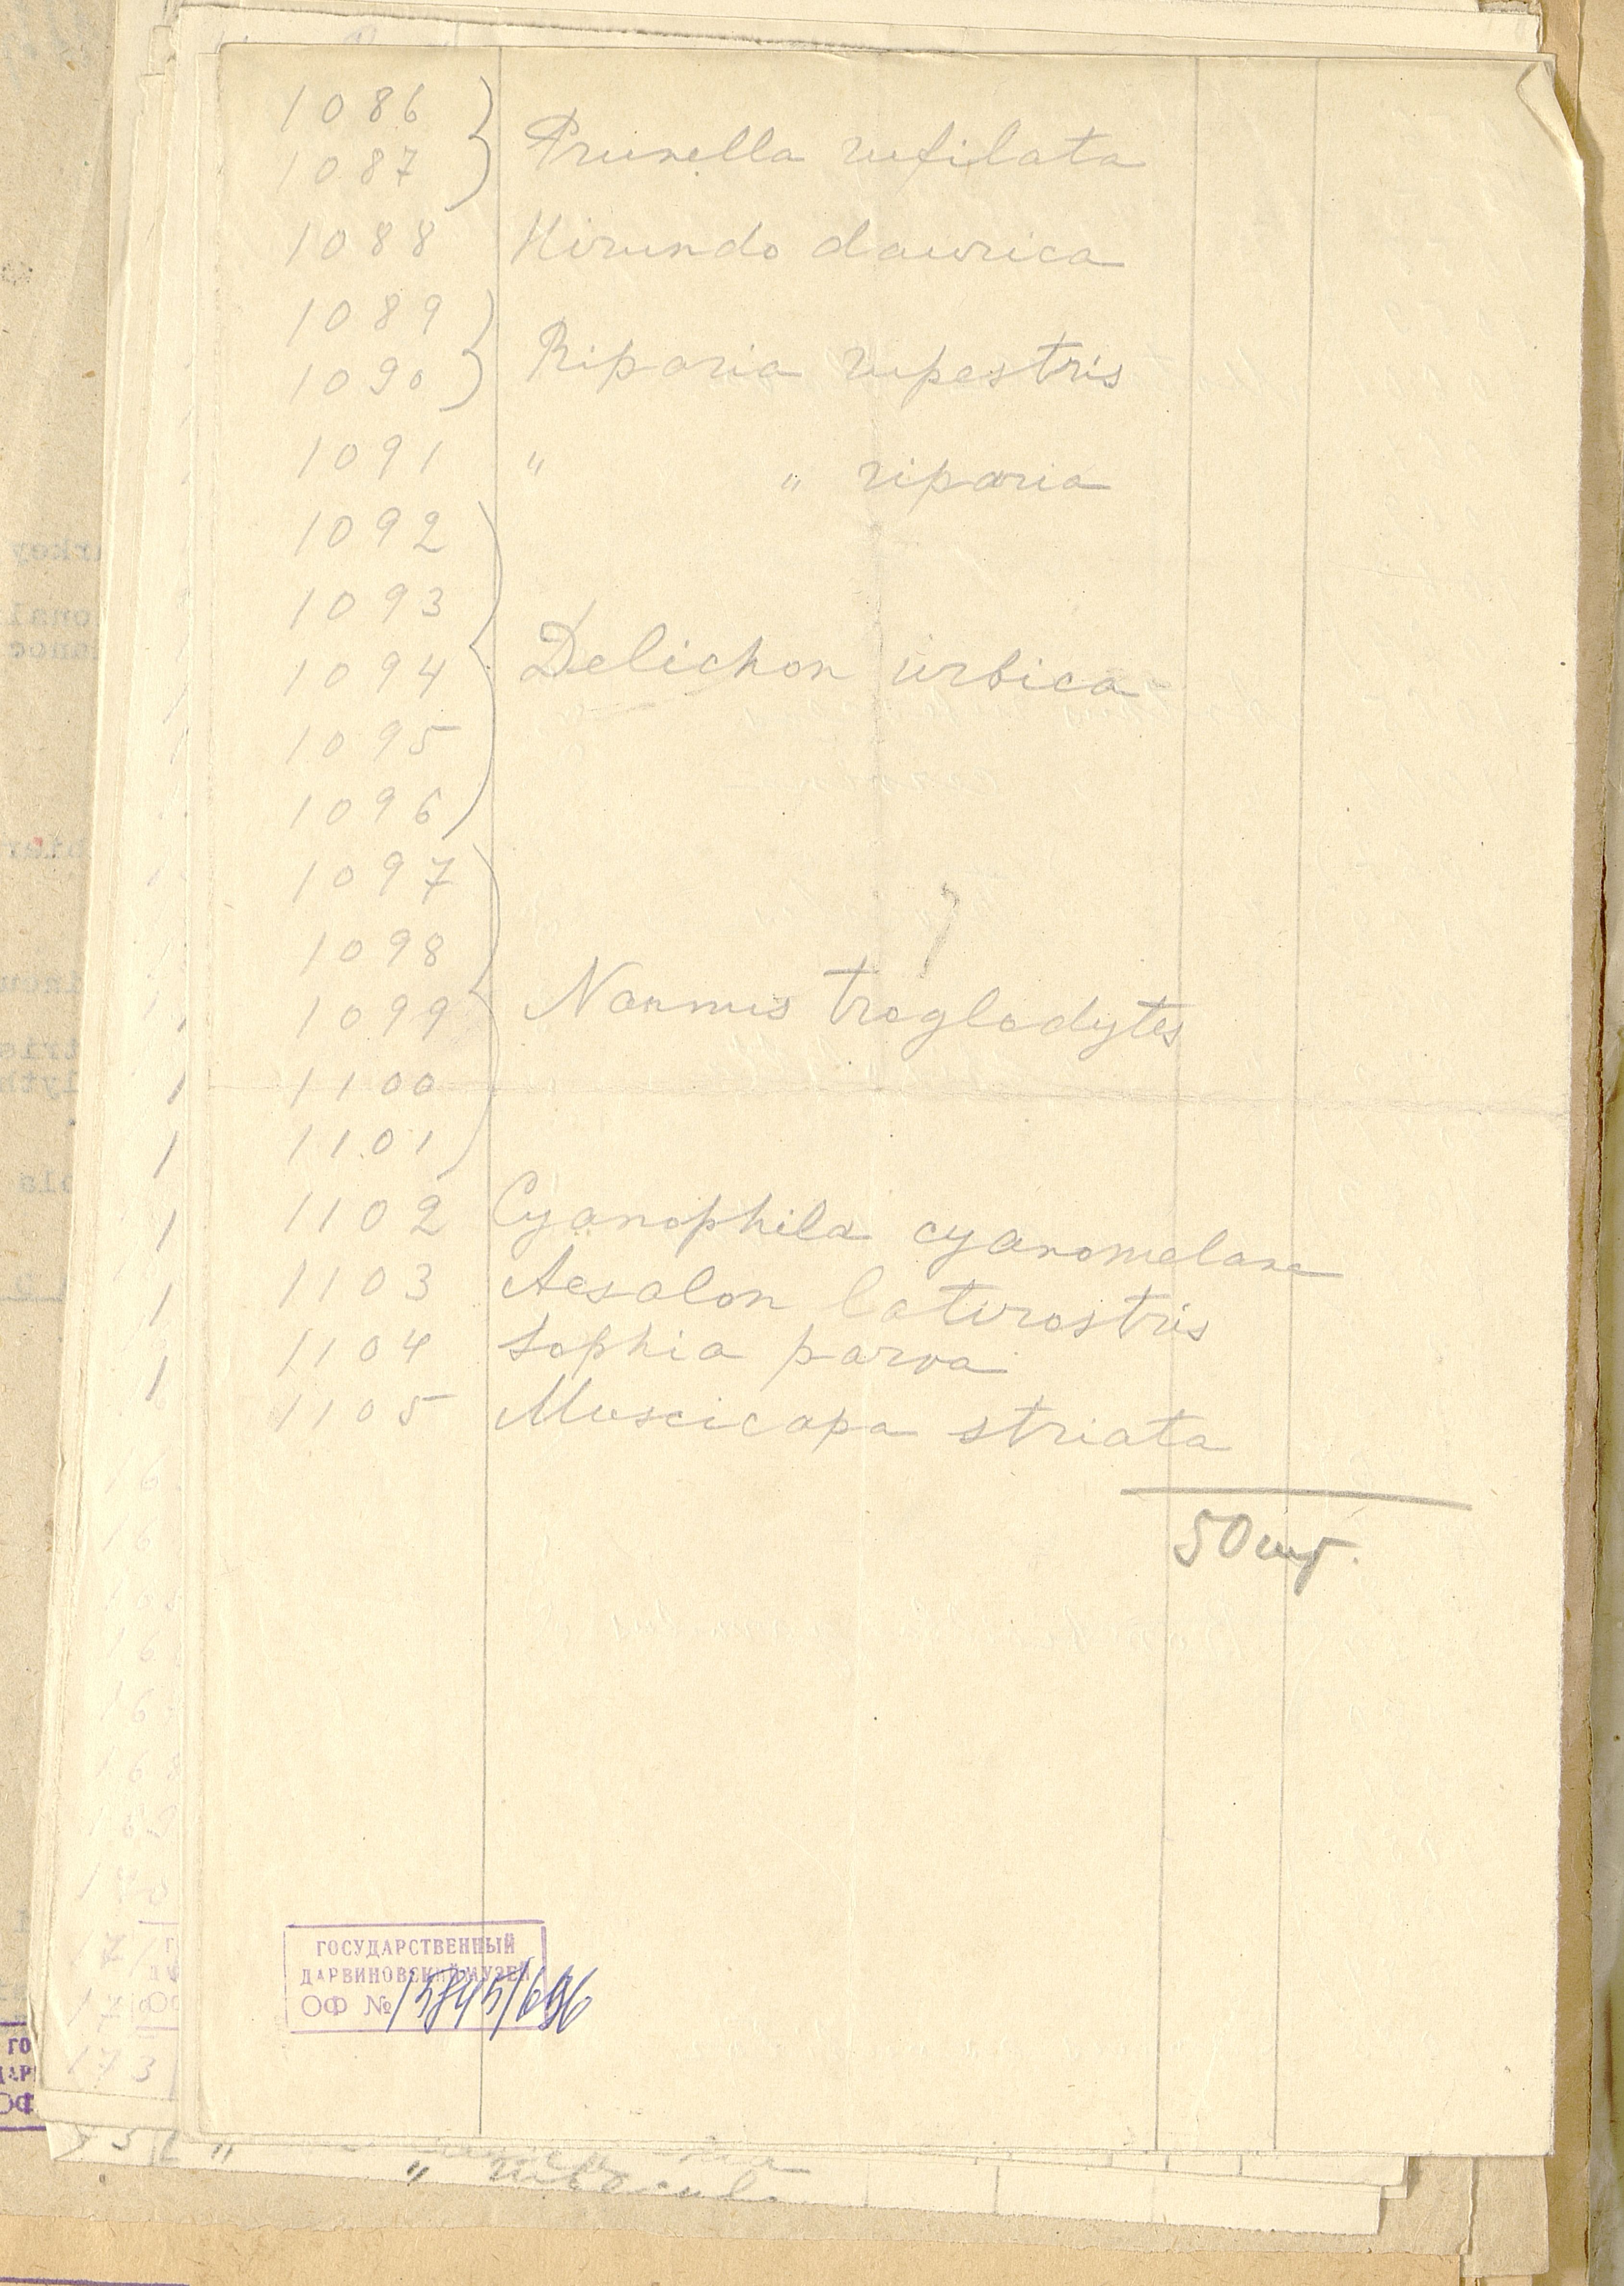 1086
1087 Prunella rufilata
1088 Hirundo daurica
1089
1090 Riparia rupestris
1091 " " riparia
1092
1093
1094 Delichon urbica
1095
1096
1097
1098
1099 Nannus troglodytes
1100
1101
1102 Cyanophila cyanomelana
1103 Aesalon latirostris
1104 Sophia parva
1105 Muscicapa striata
50 шт.
ГОСУДАРСТВЕННЫЙ
ДАРВИНОВСКИЙ МУЗЕЙ
ОФ №